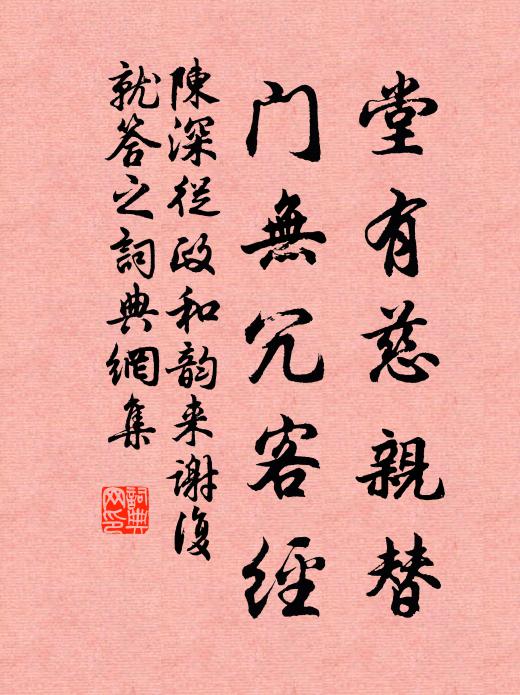 堂有慈親替
门無冗客經
陳深從政和韵来謝復
就答之詞典網集
詞典
网印